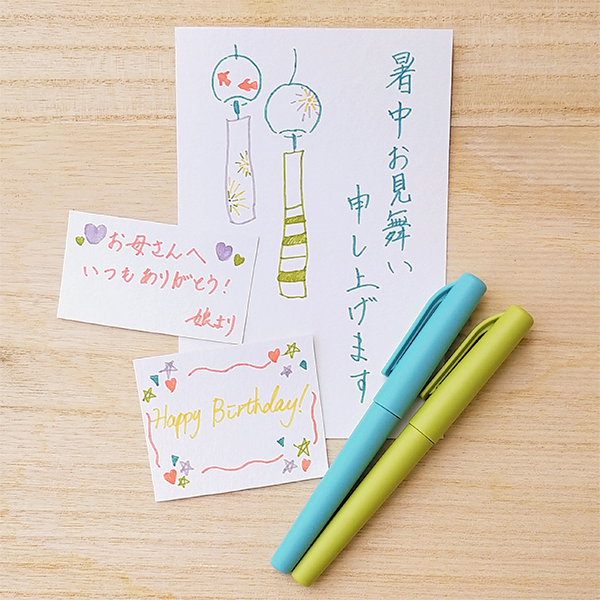 暑中お見舞い
申し上げます
お母さんへ
いつもありがとう!
娘より
Happy Birthday!